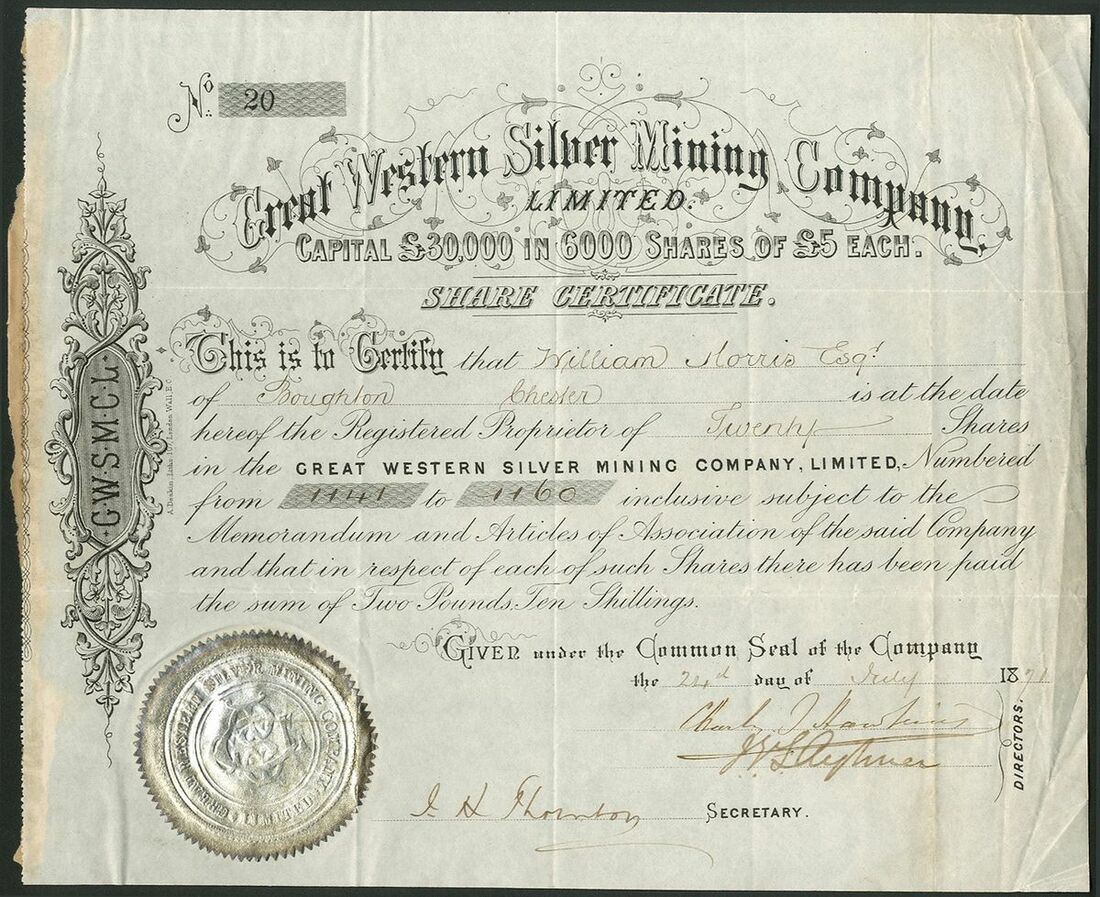 No. 20
Great Western Silver Mining Company,
LIMITED.
CAPITAL £30,000 IN 6000 SHARES OF £5 EACH.
SHARE CERTIFICATE.
This is to Certify that William Morris Esqr
of Boughton Chester is at the date
hereof the Registered Proprietor of Twenty Shares
in the GREAT WESTERN SILVER MINING COMPANY, LIMITED, Numbered
from 1141 to 1160 inclusive subject to the
Memorandum and Articles of Association of the said Company
and that in respect of each of such Shares there has been paid
the sum of Two Pounds, Ten Shillings.
GIVEN under the Common Seal of the Company
the day of July 1871
Charles J Hawkins
DIRECTORS.
J H Thornton SECRETARY.
G·W·S·M·C·L
A. Deakin, Links, 107, London Wall, E.C.
GREAT WESTERN SILVER MINING COMPANY
LIMITED